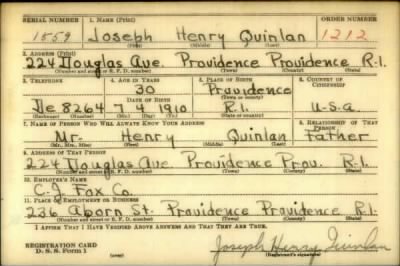 SERIAL NUMBER 1. NAME (Print) ORDER NUMBER
1559 Joseph Henry Quinlan 1212
(First) (Middle) (Last)
2. ADDRESS (Print)
224 Douglas Ave. Providence Providence R.I.
(Number and street or R. F. D. number) (Town) (County) (State)
3. TELEPHONE 4. AGE IN YEARS 5. PLACE OF BIRTH 6. COUNTRY OF CITIZENSHIP
30 Providence
(Town or county)
De 8264 DATE OF BIRTH
7 4 1910 R.I. U.S.A.
(Exchange) (Number) (Mo.) (Day) (Yr.) (State or country)
7. NAME OF PERSON WHO WILL ALWAYS KNOW YOUR ADDRESS 8. RELATIONSHIP OF THAT PERSON
Mr. Henry Quinlan Father
(Mr., Mrs., Miss) (First) (Middle) (Last)
9. ADDRESS OF THAT PERSON
224 Douglas Ave. Providence Prov. R.I.
(Number and street or R. F. D. number) (Town) (County) (State)
10. EMPLOYER'S NAME
C. J. Fox Co.
11. PLACE OF EMPLOYMENT OR BUSINESS
236 Aborn St. Providence Providence R.I.
(Number and street or R. F. D. number) (Town) (County) (State)
I AFFIRM THAT I HAVE VERIFIED ABOVE ANSWERS AND THAT THEY ARE TRUE.
REGISTRATION CARD
D. S. S. Form 1 (over) Joseph Henry Quinlan
(Registrant's signature)